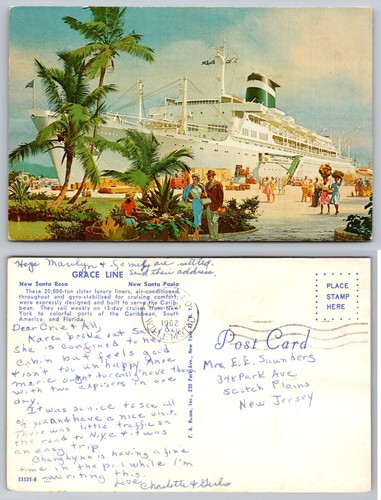 Hope Marilyn & family are settled.
Send their address.
GRACE LINE
New Santa Rosa New Santa Paula
These 20,000-ton sister luxury liners, air-conditioned
throughout and gyro-stabilized for cruising comfort,
were expressly designed and built to serve the Carib-
bean. They sail weekly on 13-day cruises from New
York to colorful ports of the Caribbean, South
America, and Florida.
Dear Erie & All
Karen broke out Saturday
She is confined to her
cabin but feels good
& isn't too unhappy. Anne
marie ought to really have them
with two exposures in one
day.
It was so nice to see all
of you and have a nice visit.
There was little traffic on
the road to N.Y.C & it was
an easy trip
Cheryl Lynn is having a fine
time in the pool while I'm
writing this.
Love, Charlotte & Girls
55525-B
F. A. Russo, Inc., 230 Park Ave., New York, N. Y.
1962
PLACE
STAMP
HERE
Post Card
Mrs E. E. Saunders
348 Park Ave
Scotch Plains
New Jersey